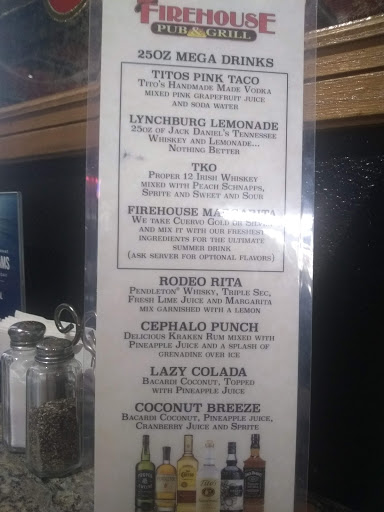 FIREHOUSE
PUB & GRILL
25OZ MEGA DRINKS
TITOS PINK TACO
TITO'S HANDMADE MADE VODKA
MIXED PINK GRAPEFRUIT JUICE
AND SODA WATER
LYNCHBURG LEMONADE
25OZ OF JACK DANIEL'S TENNESSEE
WHISKEY AND LEMONADE...
NOTHING BETTER
TKO
PROPER 12 IRISH WHISKEY
MIXED WITH PEACH SCHNAPPS,
SPRITE AND SWEET AND SOUR
FIREHOUSE MARGARITA
WE TAKE CUERVO GOLD OR SILVER
AND MIX IT WITH OUR FRESHEST
INGREDIENTS FOR THE ULTIMATE
SUMMER DRINK
(ASK SERVER FOR OPTIONAL FLAVORS)
RODEO RITA
PENDLETON® WHISKY, TRIPLE SEC,
FRESH LIME JUICE AND MARGARITA
MIX GARNISHED WITH A LEMON
CEPHALO PUNCH
DELICIOUS KRAKEN RUM MIXED WITH
PINEAPPLE JUICE AND A SPLASH OF
GRENADINE OVER ICE
LAZY COLADA
BACARDI COCONUT, TOPPED
WITH PINEAPPLE JUICE
COCONUT BREEZE
BACARDI COCONUT, PINEAPPLE JUICE,
CRANBERRY JUICE AND SPRITE